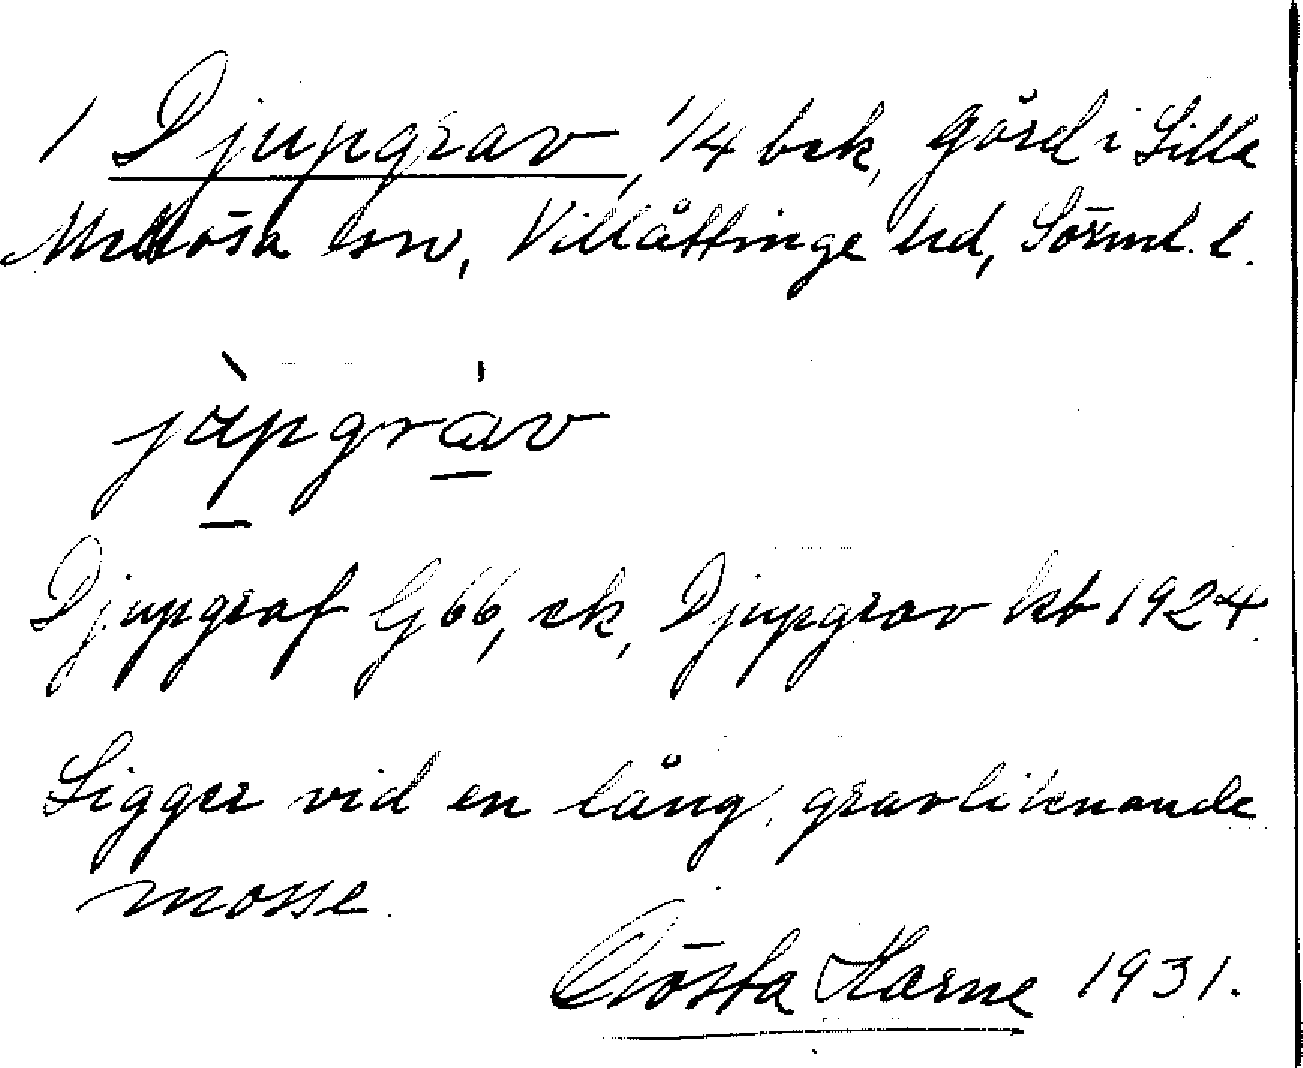 1 Djupgrav, 1/4 bsk, Gård i Lilla
Mellösa sn, Villåttinge hd, Sörml. l.
jùpgráv
Djupgraf G 66, ek, Djupgrav kb 1924.
Ligger vid en lång, gravliknande
mosse.
Gösta Harne 1931.